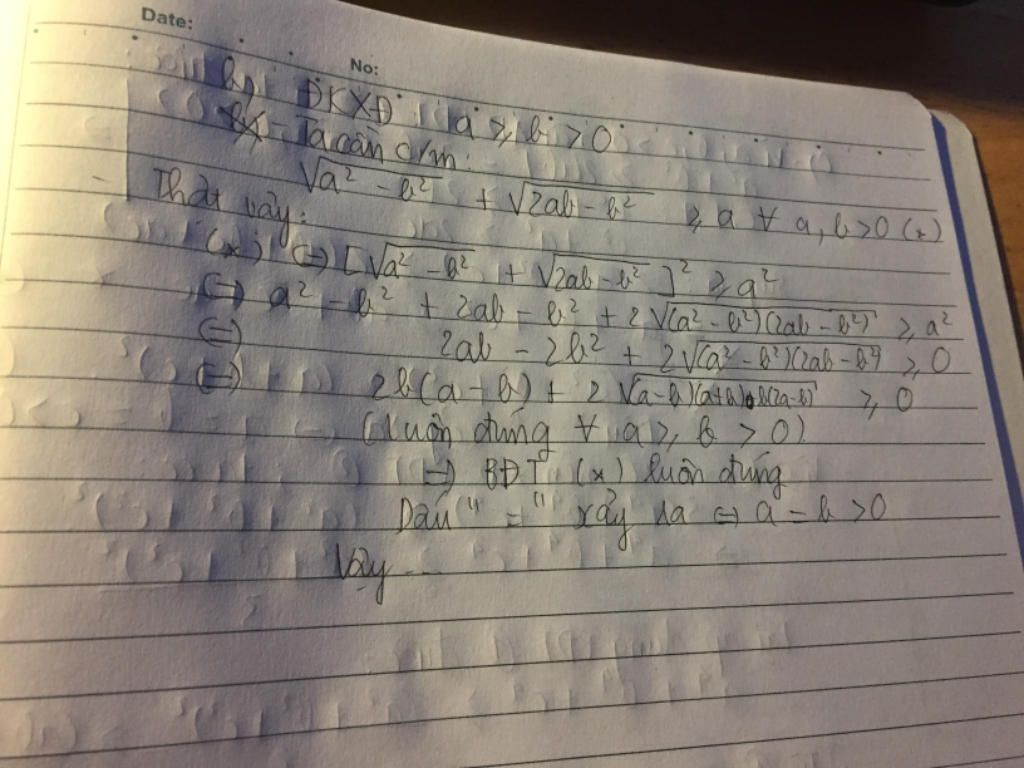 Date:
No:
b, ĐKXĐ: a ≥ b > 0
Ta cần c/m:
√(a² - b²) + √(2ab - b²) ≥ a ∀ a, b > 0 (*)
Thật vậy:
(*) ⇔ [√(a² - b²) + √(2ab - b²)]² ≥ a²
⇔ a² - b² + 2ab - b² + 2√((a² - b²)(2ab - b²)) ≥ a²
⇔ 2ab - 2b² + 2√((a² - b²)(2ab - b²)) ≥ 0
⇔ 2b(a - b) + 2√((a-b)(a+b).b(2a-b)) ≥ 0
(luôn đúng ∀ a ≥ b > 0)
⇒ BĐT (*) luôn đúng
Dấu "=" xảy ra ⇔ a = b > 0
Vậy ...